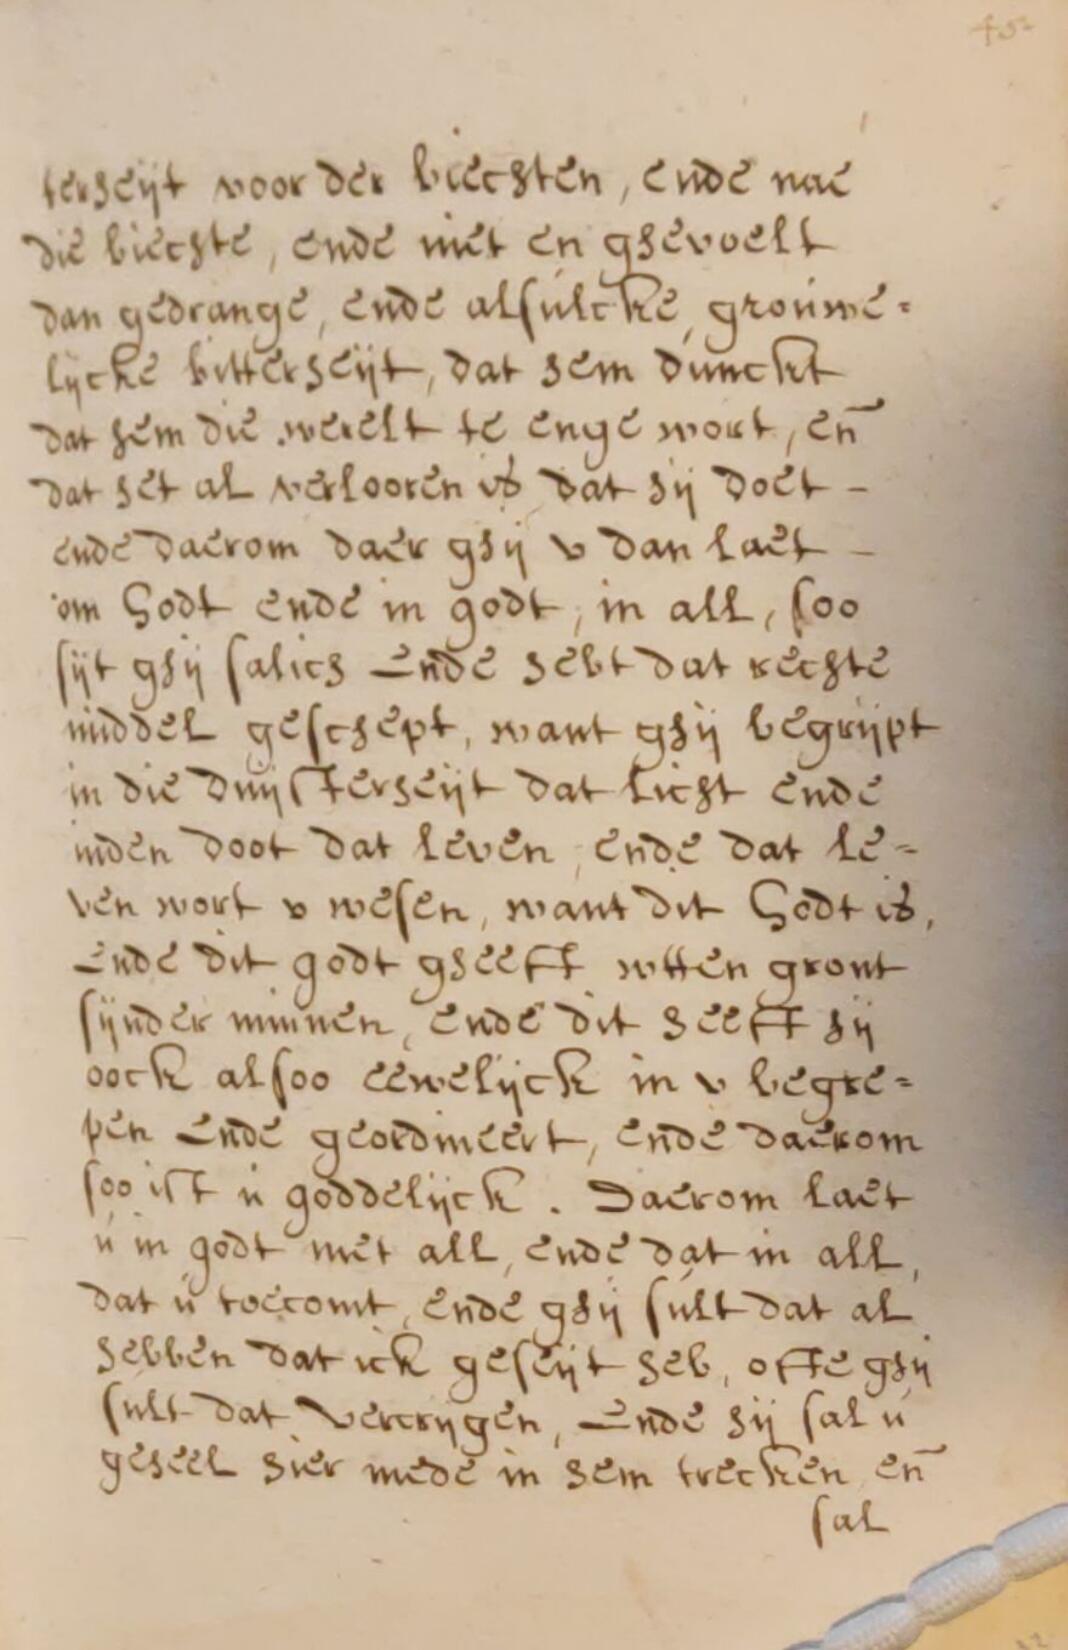 45
terheijt voor der biechten, ende nae
die biechte, ende niet en ghevoelt
dan gedrange, ende alsulcke grouwe=
lijcke bitterheijt, dat hem dunckt
dat hem die werelt te enge wort, en̄
dat het al verlooren is dat hij doet –
ende daerom daer ghij v dan laet –
om Godt ende in godt, in all, soo
sijt ghij salich Ende hebt dat rechte
middel geschept, want ghij begrijpt
in die duijsterheijt dat licht ende
inden doot dat leven, ende dat le=
ven wort v wesen, want dit Godt is,
Ende dit godt gheeft wtten gront
sijnder minnen, ende dit heeft hij
oock alsoo eewelijck in v begre=
pen Ende geordineert, ende daerom
soo ist u goddelijck. Daerom laet
u in godt met all, ende dat in all,
dat u toecomt, ende ghij sult dat al
hebben dat ick geseijt heb, ofte ghij
sult dat vercrijgen, Ende hij sal u
geheel hier mede in hem trecken en̄
sal